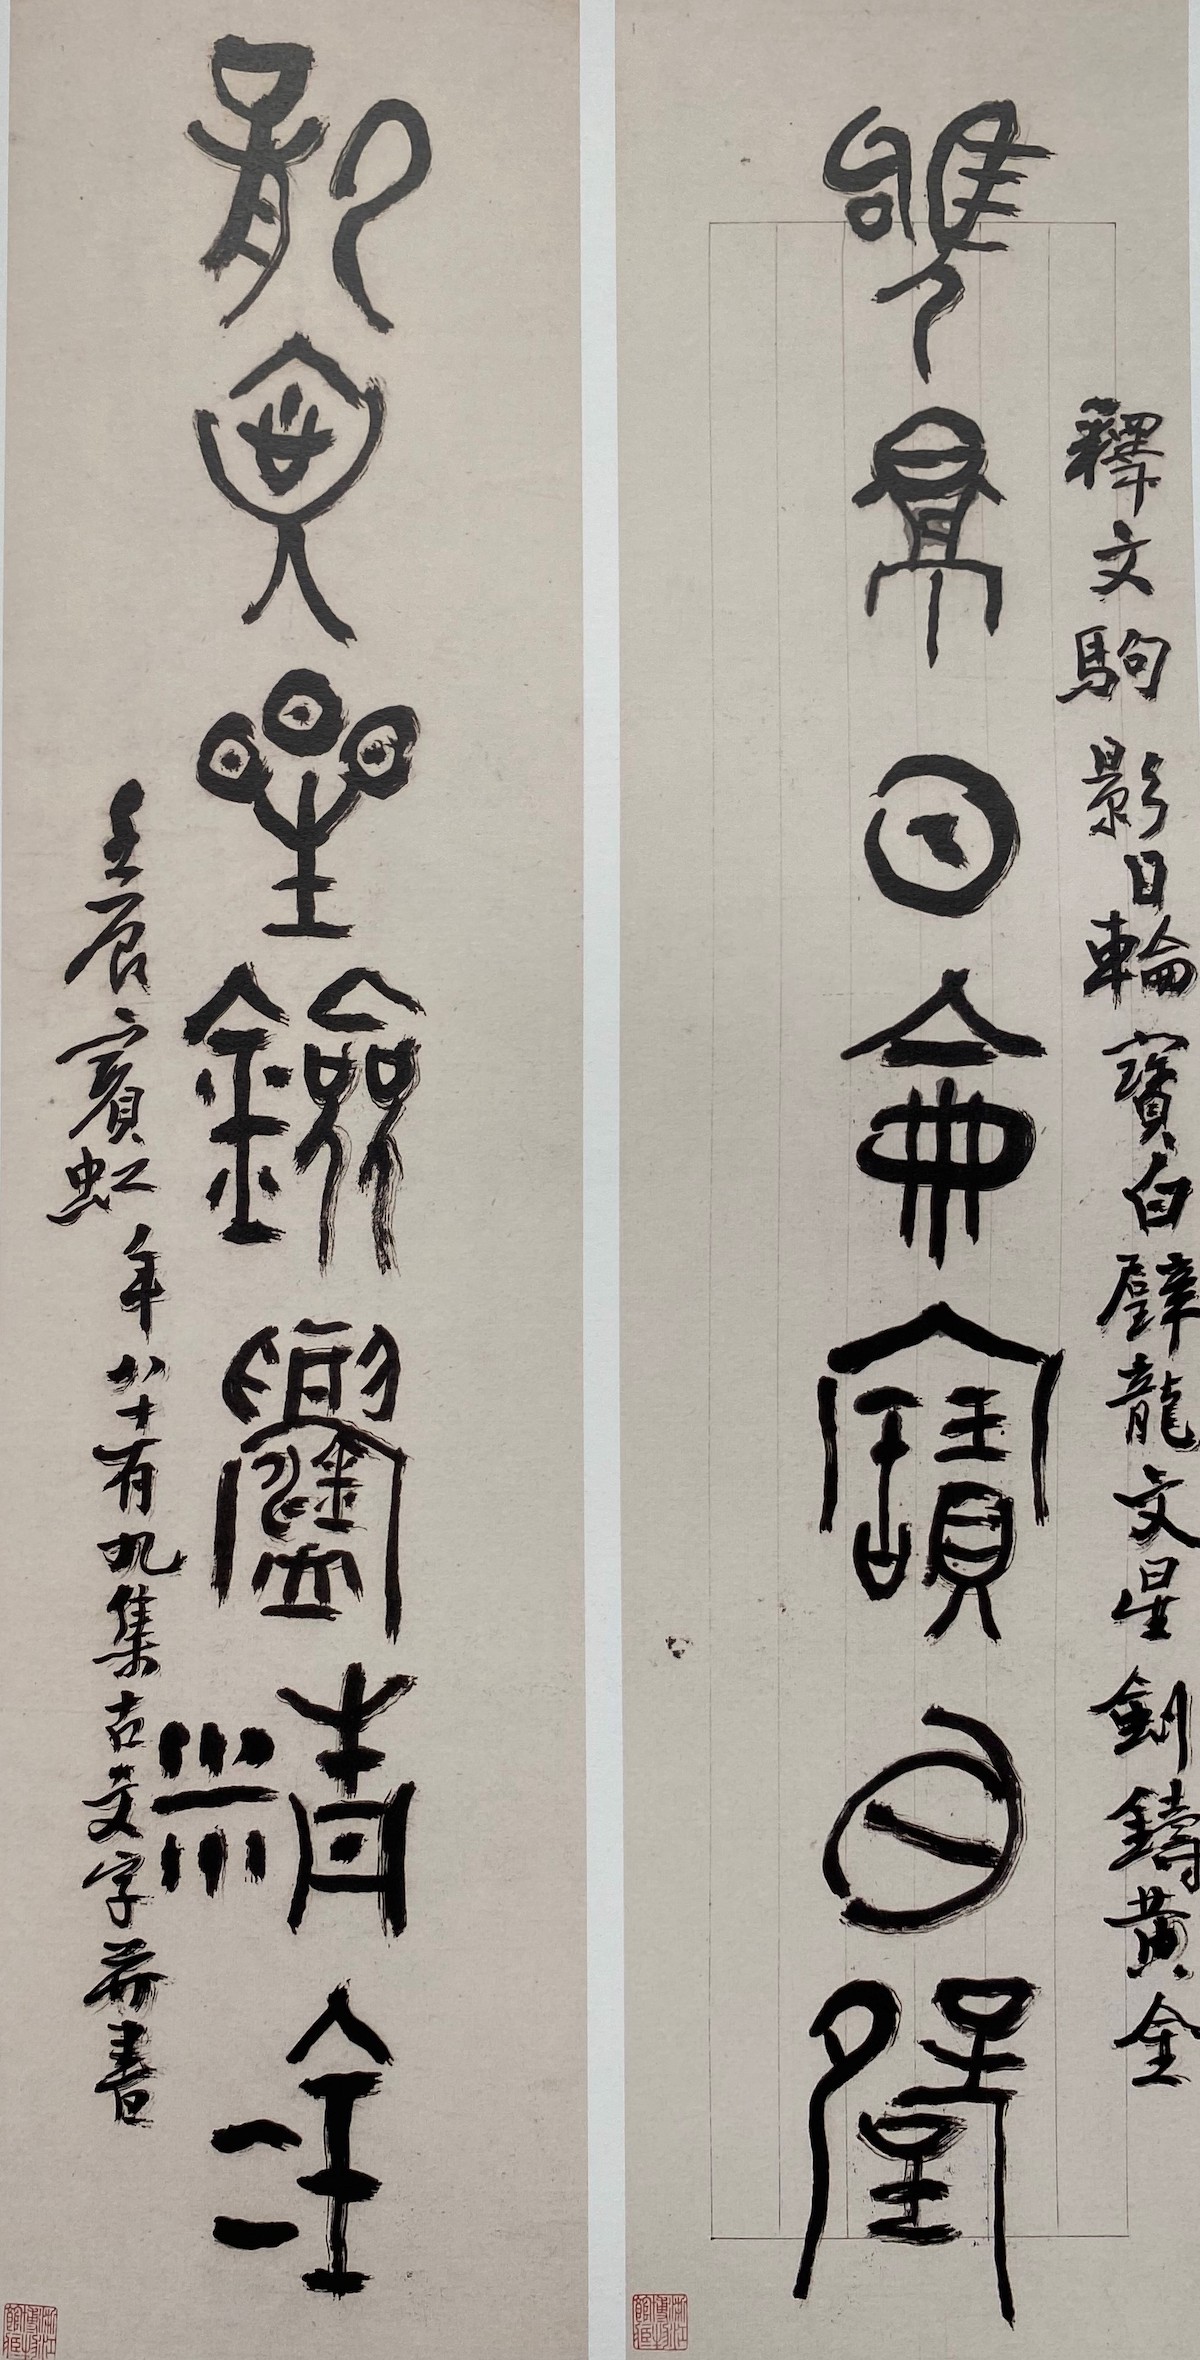 駒影日輪寶白璧
釋文駒影日輪寶白璧龍文星劍鑄黃金
龍文星劍鑄黃金
壬辰賓虹年八十有九集古文字并書